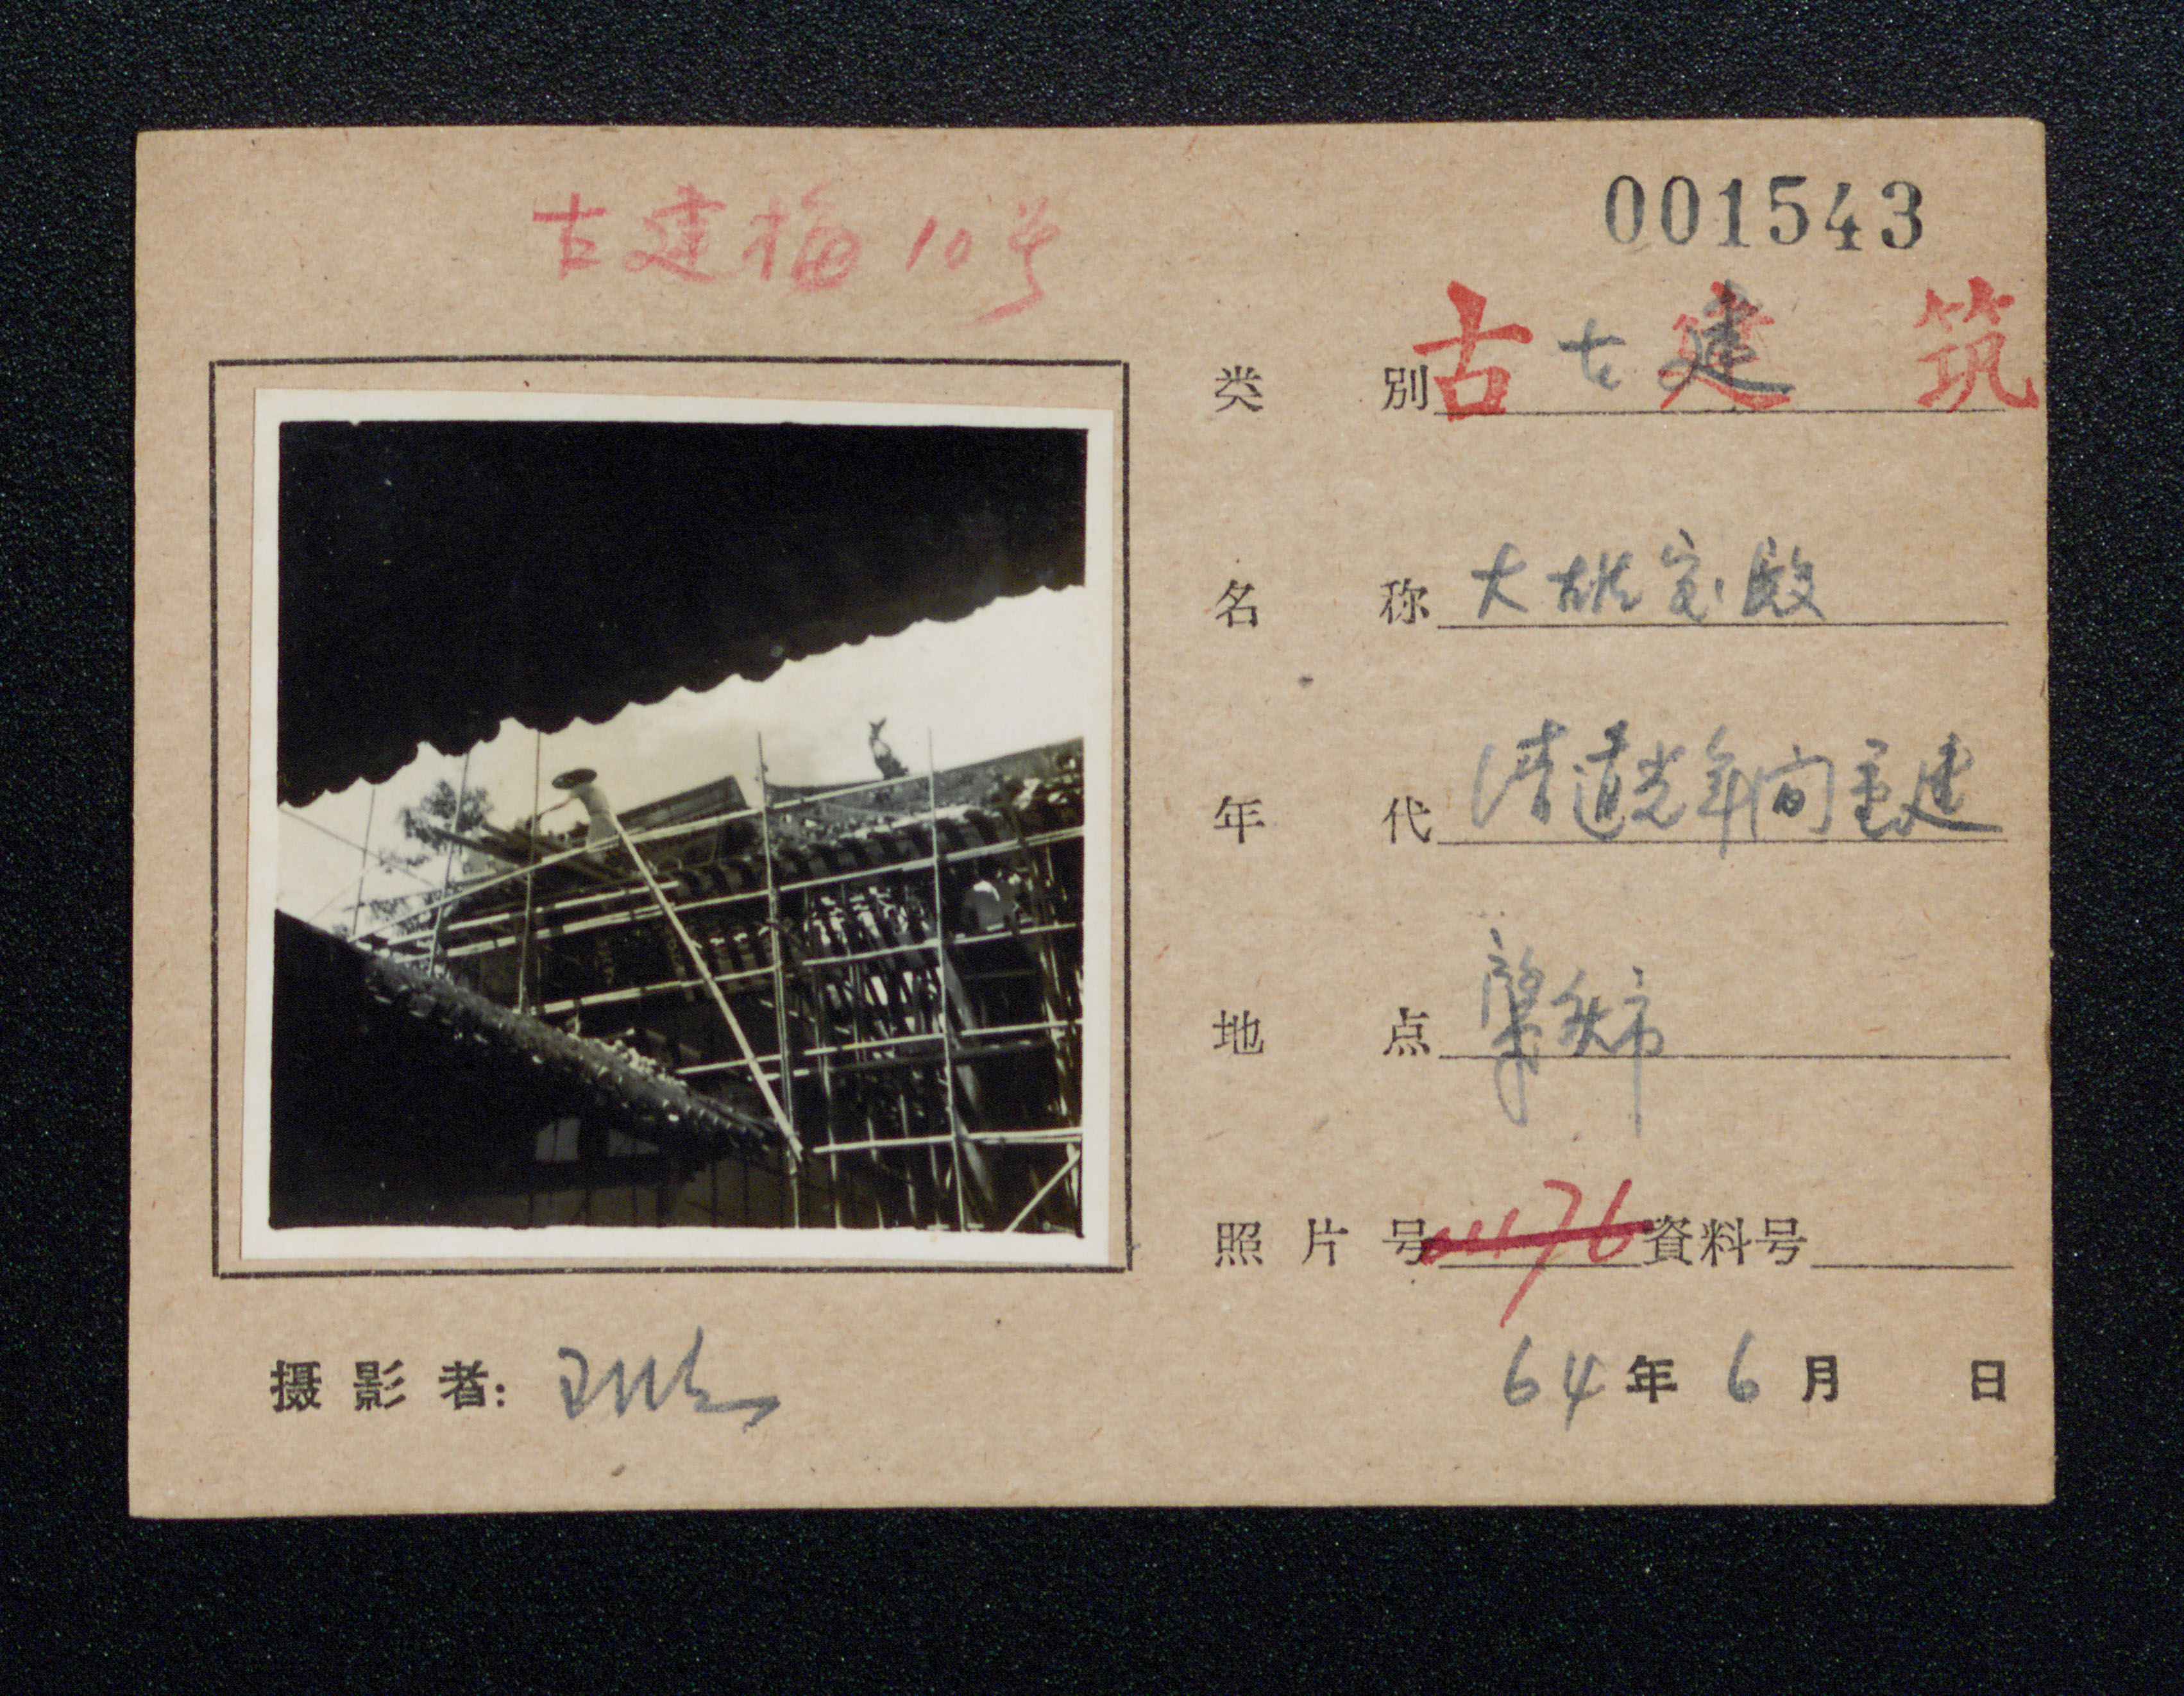 古建梅10号
001543
类别 古建筑 古建
名称 大雄宝殿
年代 清道光年间重建
地点 肇庆市
照片号 資料号
摄影者:
64年6月 日